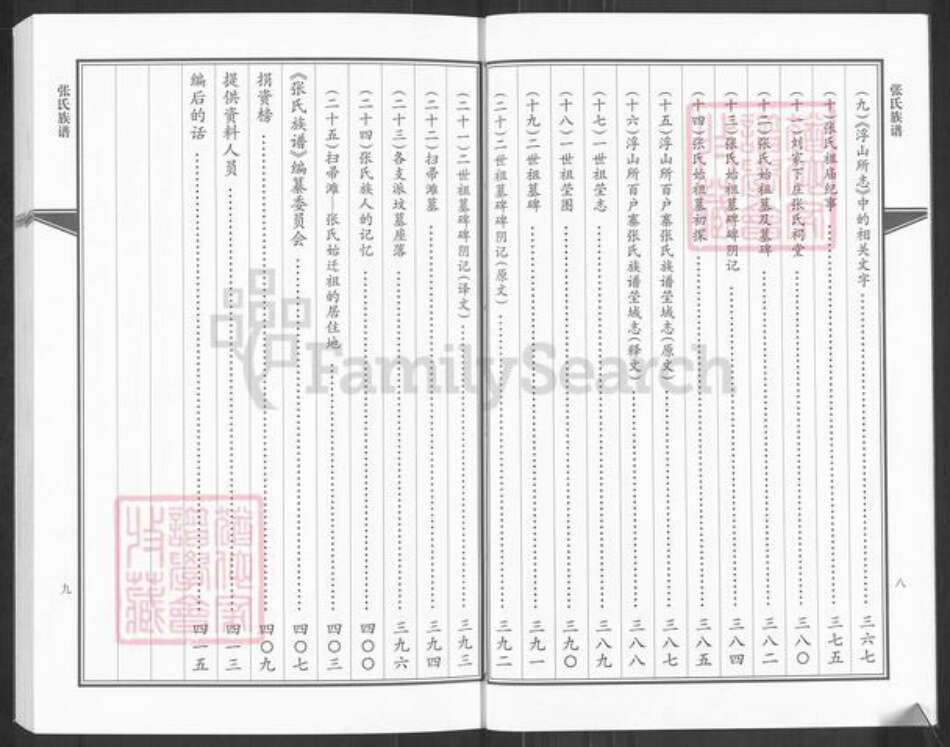 张氏族谱
（九）《浮山所志》中的相关文字……三六七
（十）张氏祖庙纪事……三七五
（十一）刘家下庄张氏祠堂……三八〇
（十二）张氏始祖墓及墓碑……三八二
（十三）张氏始祖墓碑碑阴记……三八四
（十四）张氏始祖墓初探……三八五
（十五）浮山所百户寨张氏族谱茔域志（原文）……三八七
（十六）浮山所百户寨张氏族谱茔域志（释文）……三八八
（十七）一世祖茔志……三八九
（十八）一世祖茔图……三九〇
（十九）二世祖墓碑……三九一
（二十）二世祖墓碑碑阴记（原文）……三九二
八
（二十一）二世祖墓碑碑阴记（译文）……三九三
（二十二）扫帚滩墓……三九四
（二十三）各支派坟墓座落……三九六
（二十四）张氏族人的记忆……四〇〇
（二十五）扫帚滩——张氏始迁祖的居住地……四〇三
《张氏族谱》编纂委员会……四〇七
捐资榜……四〇九
提供资料人员……四一三
编后的话……四一五
张氏族谱
九
FamilySearch